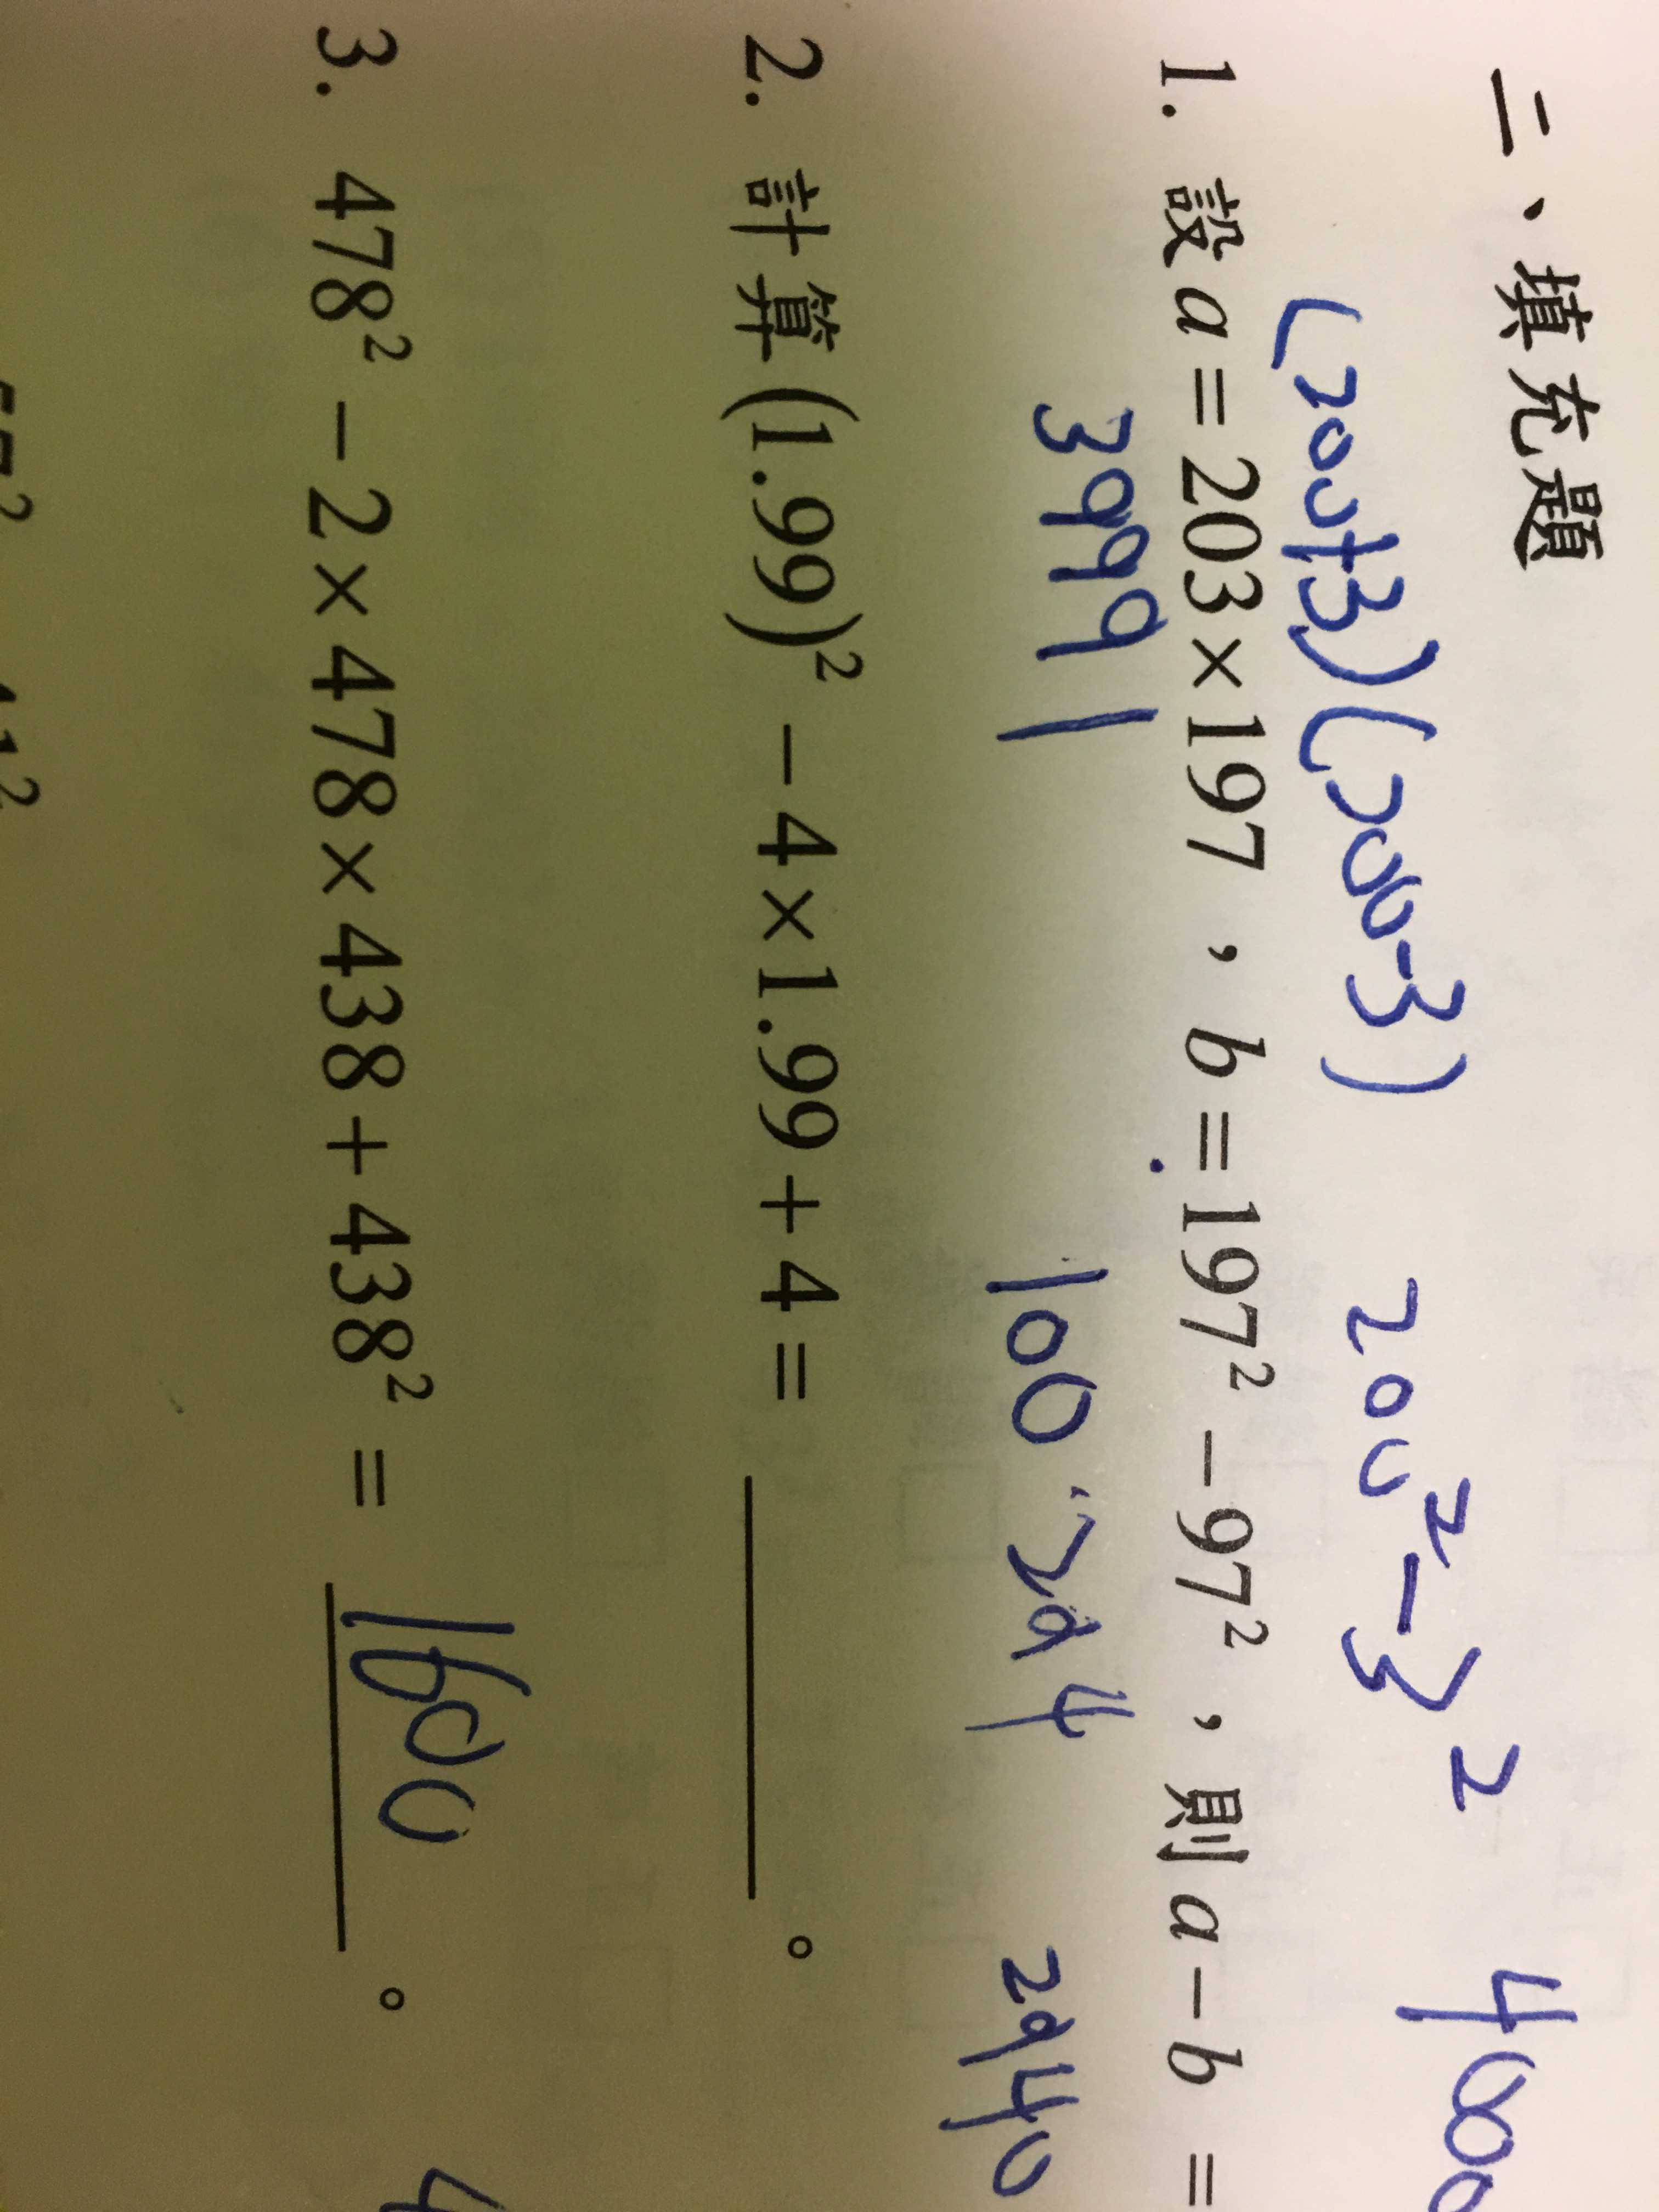 二、填充題
(200+3)(200-3) 200²-3² 4000
1. 設a=203×197，b=197²-97²，則a-b=
39991 100·294 2940
2. 計算(1.99)²-4×1.99+4=＿＿＿＿。
3. 478²-2×478×438+438²=1600。
4